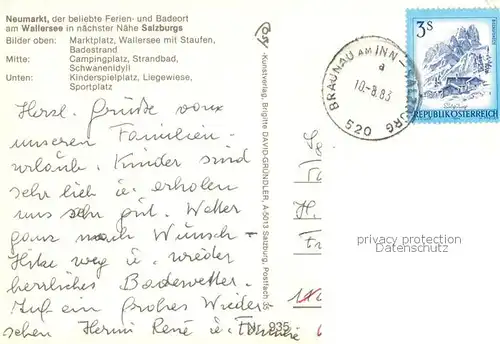 Neumarkt, der beliebte Ferien- und Badeort
am Wallersee in nächster Nähe Salzburgs
Bilder oben: Marktplatz, Wallersee mit Staufen,
Badestrand
Mitte: Campingplatz, Strandbad,
Schwanenidyll
Unten: Kinderspielplatz, Liegewiese,
Sportplatz
Herzl. Grüße vom
unseren Familien-
urlaub. Kinder sind
sehr lieb u. erholen
uns sehr gut. Wetter
ganz nach Wunsch -
Hitze weg u. wieder
herrliches Badewetter.
Auf ein frohes Wieder-
sehen Hermi René u.
Kunstverlag, Brigitte DAVID-GRÜNDLER, A-5013 Salzburg, Postfach 35
Nr. 935
BRAUNAU AM INN - SALZBURG
a
10.-8.83
520
3S
REPUBLIK ÖSTERREICH
privacy protection
Datenschutz